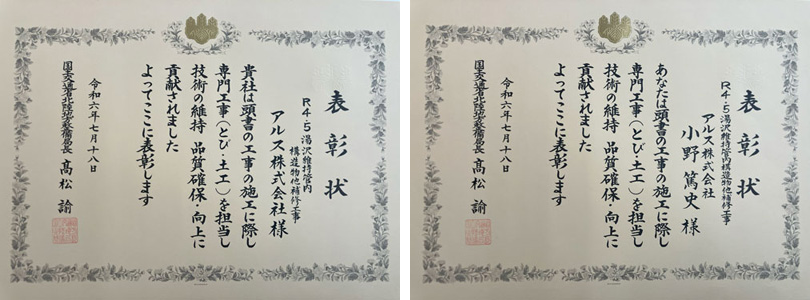 表彰状
R4・5湯沢維持管内
構造物他補修工事
アルス株式会社 様
貴社は頭書の工事の施工に際し
専門工事（とび・土工）を担当し
技術の維持 品質確保・向上に
貢献されました
よってここに表彰します
令和六年七月十八日
国土交通省北陸地方整備局長 髙松 諭
表彰状
R4・5湯沢維持管内構造物他補修工事
アルス株式会社
小野 篤史 様
あなたは頭書の工事の施工に際し
専門工事（とび・土工）を担当し
技術の維持 品質確保・向上に
貢献されました
よってここに表彰します
令和六年七月十八日
国土交通省北陸地方整備局長 髙松 諭